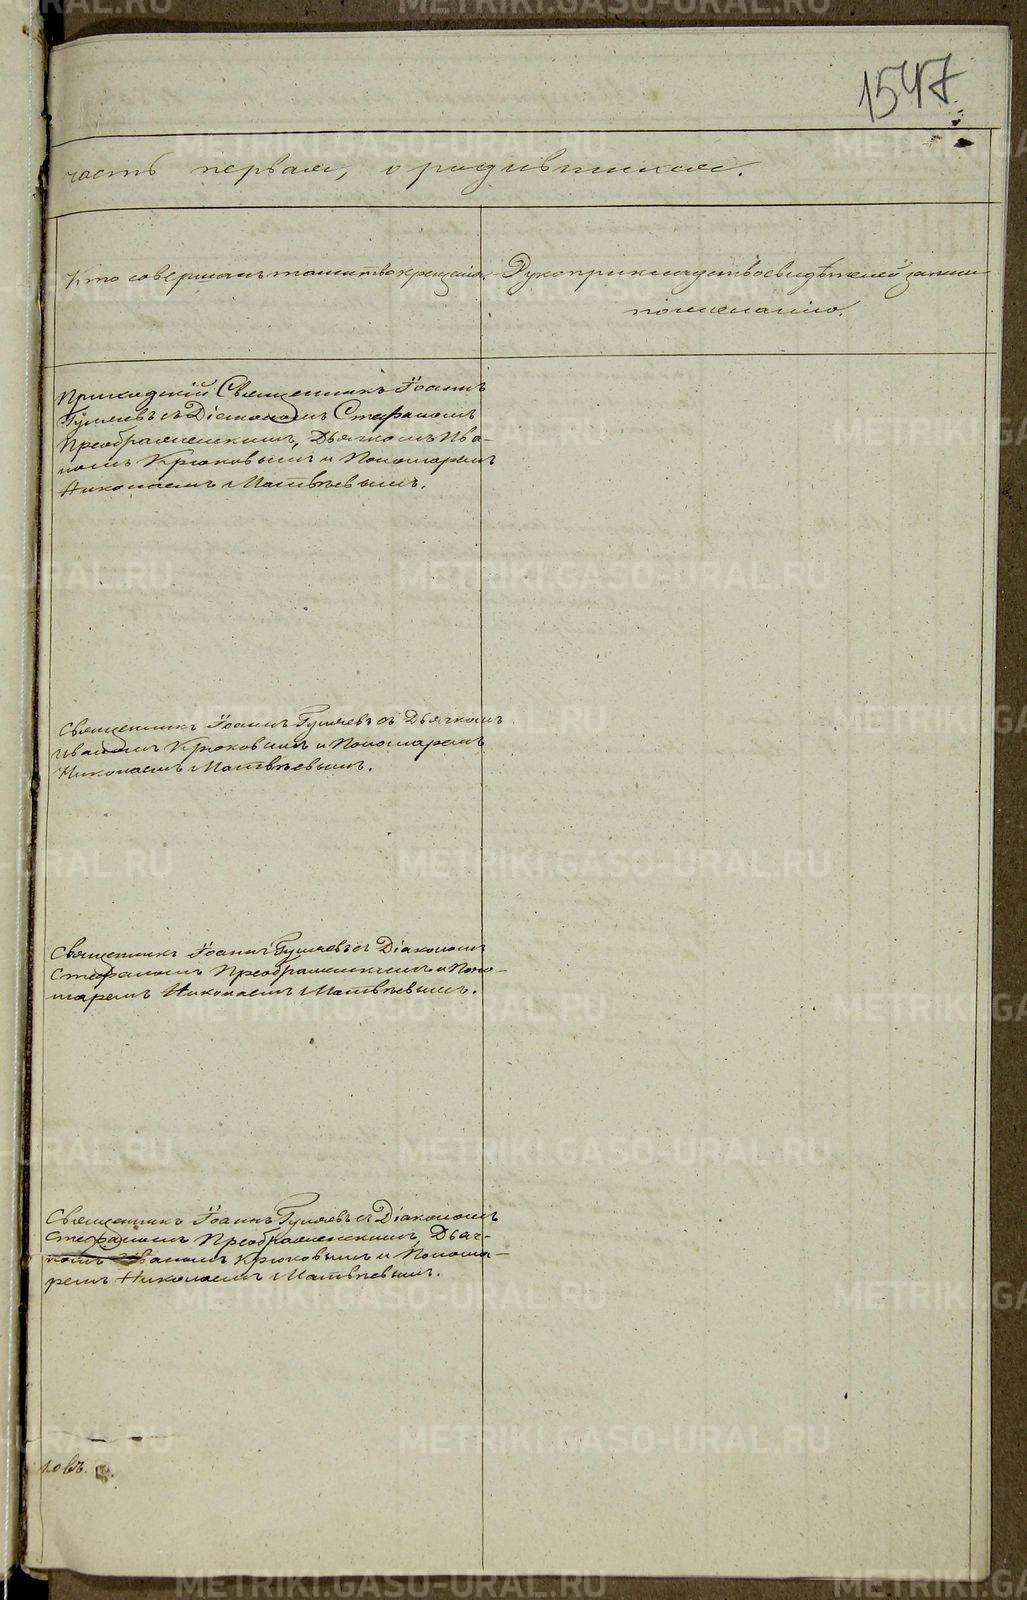 1547
часть первая, о родившихся.
Кто совершалъ таинство крещенія.
Рукоприкладство свидѣтелей записи
по желанію.
Приходскій Священникъ Іоаннъ
Гуляевъ съ Діакономъ Стефаномъ
Преображенскимъ, Дьячкомъ Ива-
номъ Крюковымъ и Пономаремъ
Николаемъ Матвѣевымъ.
Священникъ Іоаннъ Гуляевъ съ Дьячкомъ
Иваномъ Крюковымъ и Пономаремъ
Николаемъ Матвѣевымъ.
Священникъ Іоаннъ Гуляевъ съ Діакономъ
Стефаномъ Преображенскимъ и Поно-
маремъ Николаемъ Матвѣевымъ.
Священникъ Іоаннъ Гуляевъ съ Діакономъ
Стефаномъ Преображенскимъ, Дьяч-
комъ Иваномъ Крюковымъ и Понома-
ремъ Николаемъ Матвѣевымъ.
ловъ.
METRIKI.GASO-URAL.RU